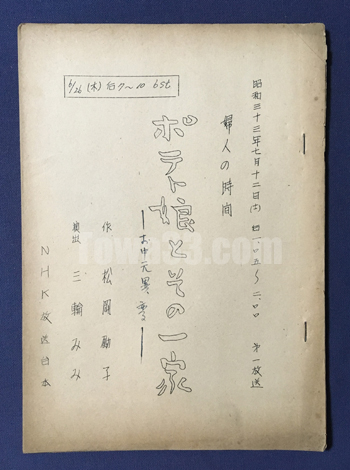 6/26 (木) 6st
昭和三十三年七月十二日(土)
第一放送
婦人の時間
ポテト娘とその一家
―お中元異変―
作 松岡励子
演出 三輪みみ
NHK放送台本
Towa33.com